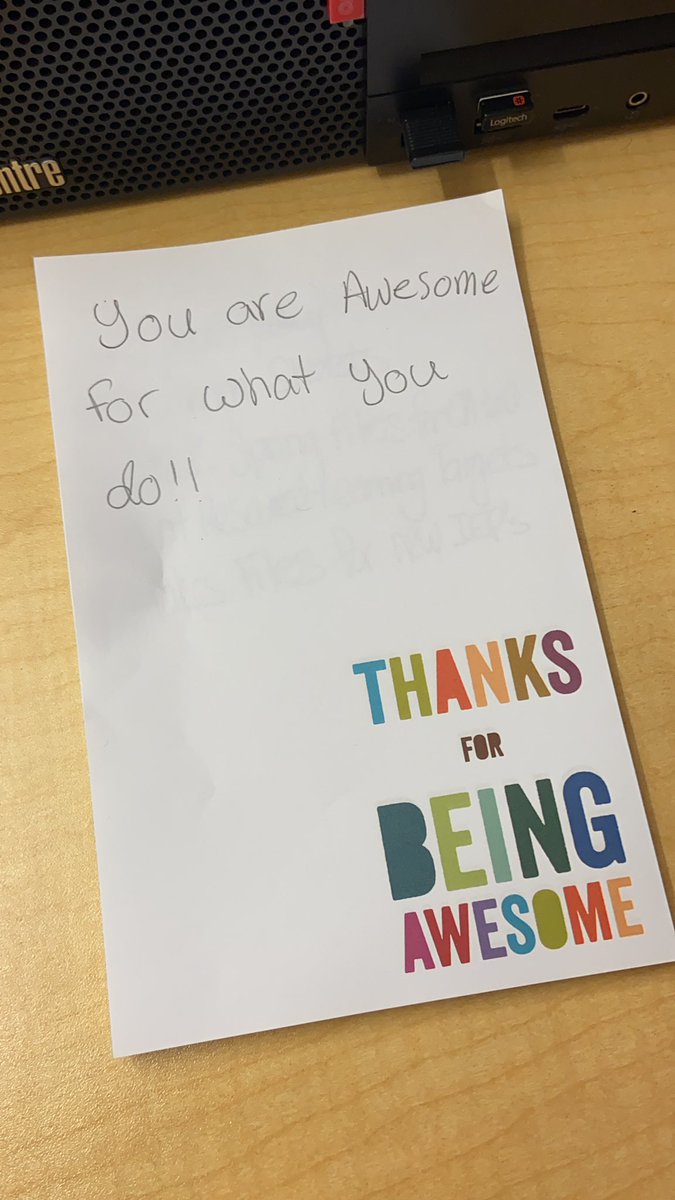 ntre
Logitech
You are Awesome
for what you
do!!
THANKS
FOR
BEING
AWESOME